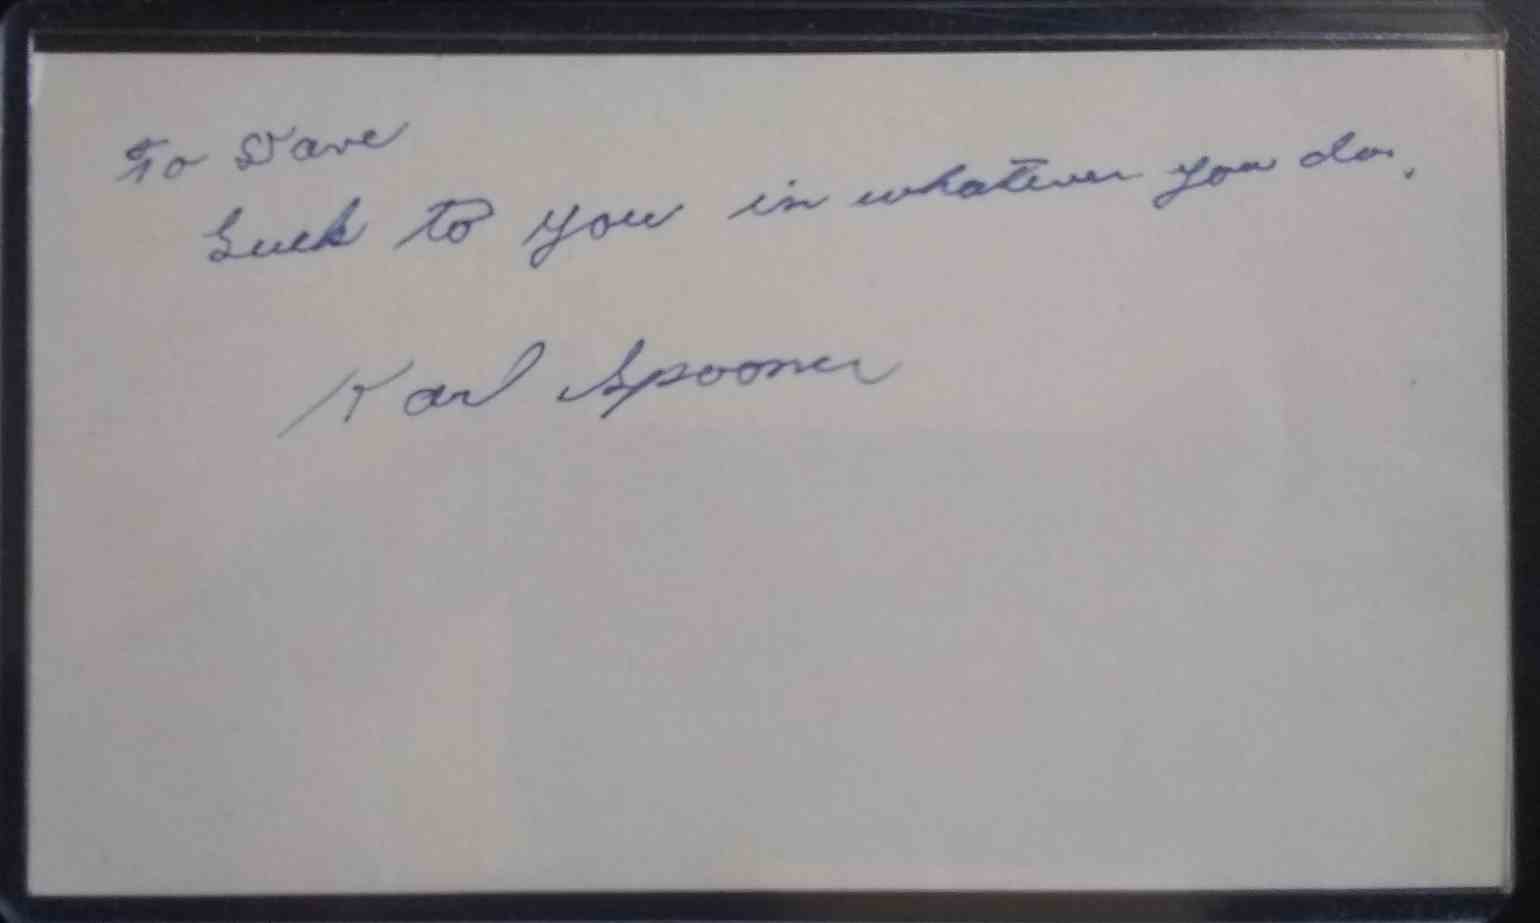 To Dave
Luck to you in whatever you do.
Karl Spooner